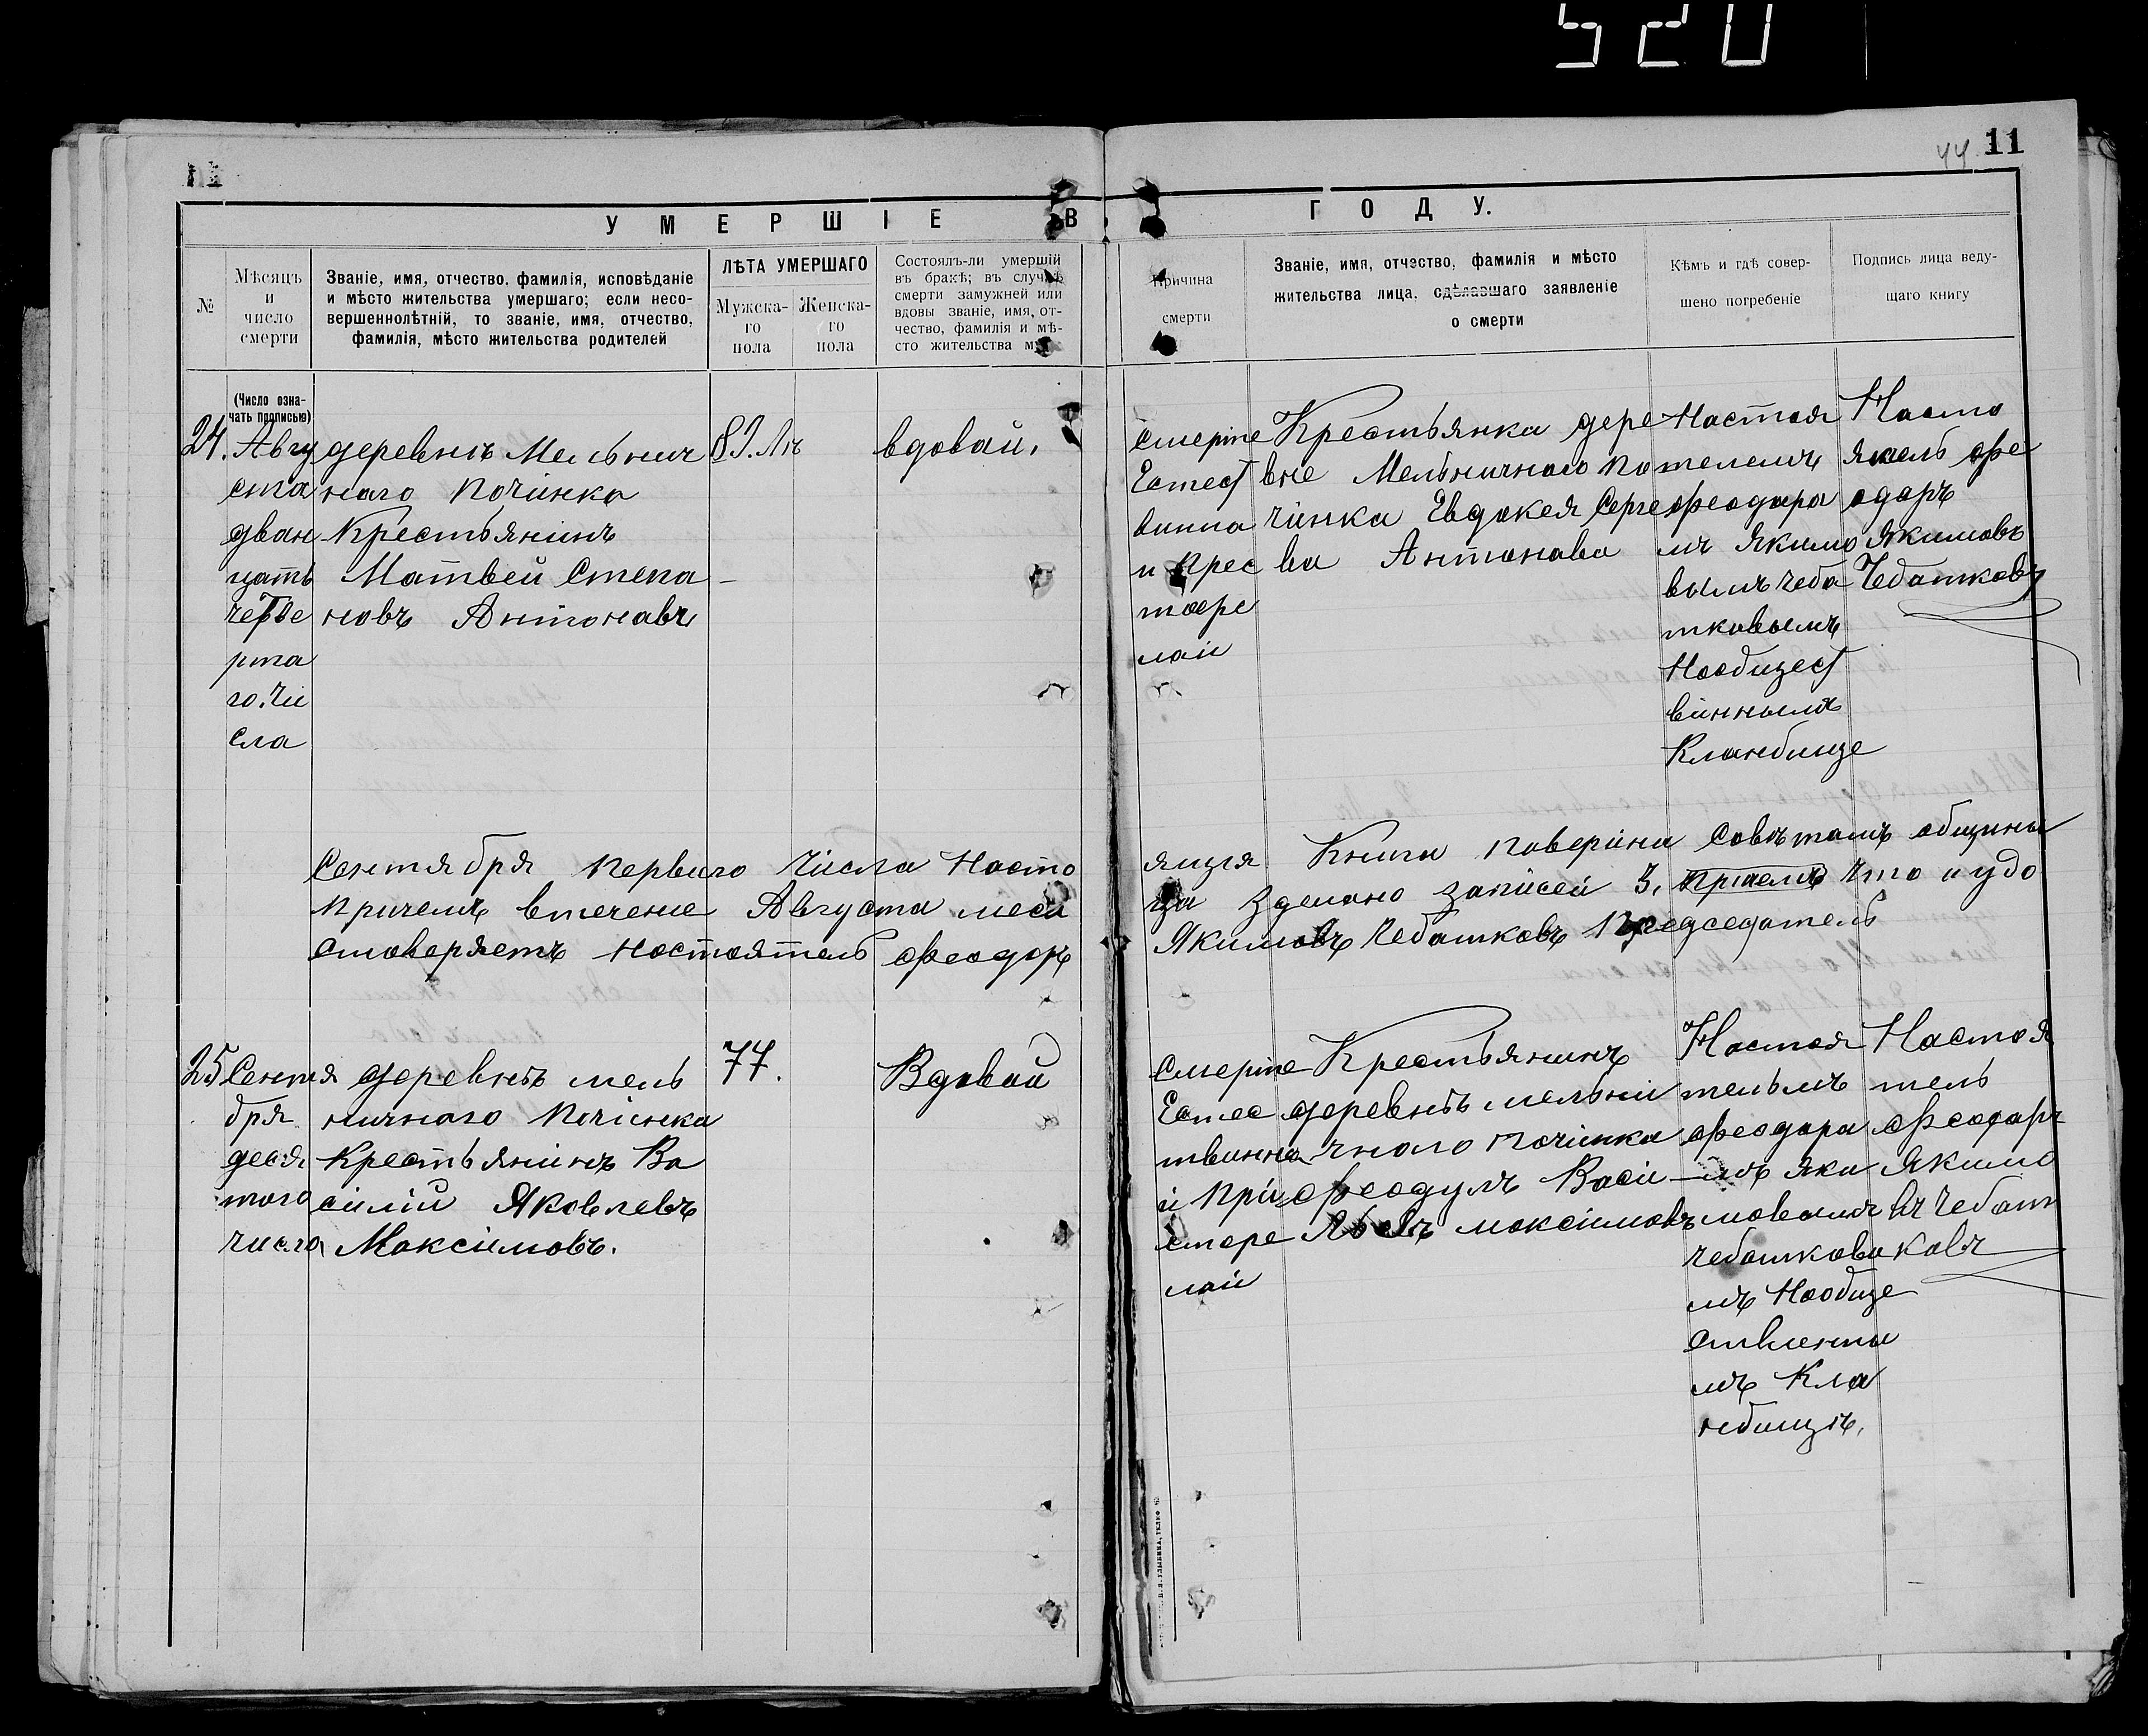 520
44 11
УМЕРШІЕ ВЪ ГОДУ.
№
Мѣсяцъ
и
число
смерти
Званіе, имя, отчество, фамилія, исповѣданіе
и мѣсто жительства умершаго; если несо-
вершеннолѣтній, то званіе, имя, отчество,
фамилія, мѣсто жительства родителей
ЛѢТА УМЕРШАГО
Мужска-
го
пола
Женска-
го
пола
Состоялъ-ли умершій
въ бракѣ; въ случаѣ
смерти замужней или
вдовы званіе, имя, от-
чество, фамилія и мѣ-
сто жительства
Причина
смерти
Званіе, имя, отчество, фамилія и мѣсто
жительства лица, сдѣлавшаго заявленіе
о смерти
Кѣмъ и гдѣ совер-
шено погребеніе
Подпись лица веду-
щаго книгу
(Число озна-
чать прописью)
24.
Авгу
ста
дван
цать
четве
рта
го. чи
сла
деревнѣ Мельнич
наго Починка
Крестьянинъ
Матвей Степа
новъ Антонавъ
вдовай.
смерте
Естест
винна
и Прес
торе
лаи
Крестьянка дере
вне Мельничнаго По
чинка Евдокея Серге
ва Антонава
Настоя
телемъ
феодара
мъ Якимо
вымъ Чеба
тковымъ
Наобщест
винныма
Кланбище
Насто
ятель фе
одаръ
Якимовъ
Чебатковъ
Сентября первага числа Насто
ящая Книга паверина Савѣтамъ общины
причемъ втечение Августа меся
ца зделано записей 3. Что и удо
стоверяетъ Настоятель феодоръ
Якимовъ Чебатковъ Председатель
25
Сентя
бря
деся
таго
число
деревнѣ мель
ничнаго Починка
Крестьянинъ Ва
силий Яковлевъ
Максимовъ.
77.
Вдовай
смерте
Естес
твинна
и При
старе
лаи
Крестьянинъ
деревнѣ мельни
чнаго починка
феодулъ Васи
максимовъ
Настоя
тельмъ
феодара
мъ Яки
мовымъ
чебаткова
мъ Наобще
ственны
мъ Кла
нбищѣ.
Настоя
тель
феодаръ
Якимо
въ Чебат
ковъ